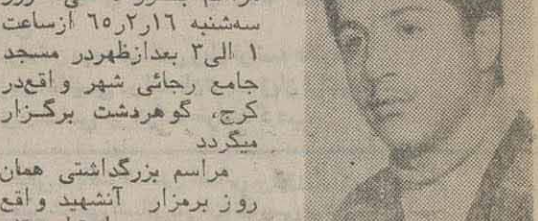 سه‌شنبه ۱۶ر۲ر۶۵ ازساعت
۱ الی۳ بعدازظهردر مسجد
جامع رجائی شهر واقع‌در
کرج، گوهردشت برگزار
میگردد
مراسم بزرگداشتی همان
روز برمزار آنشهید واقع